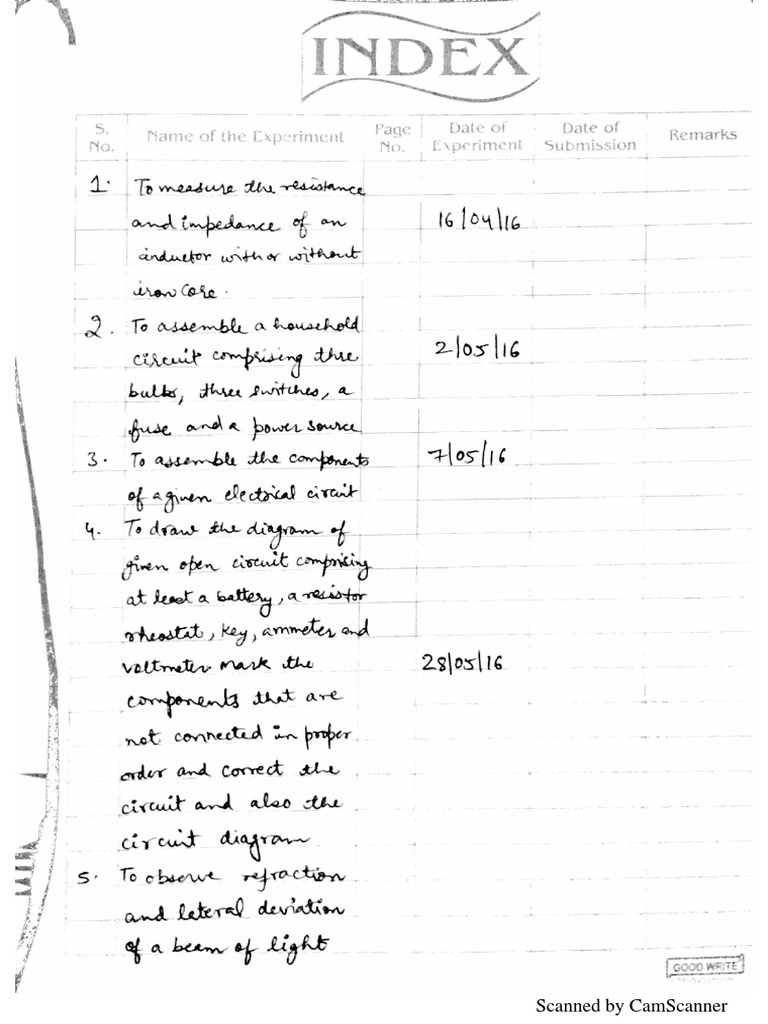 INDEX
S. No. Name of the Experiment Page No. Date of Experiment Date of Submission Remarks
1. To measure the resistance
and impedance of an 16/04/16
inductor with or without
iron core.
2. To assemble a household
circuit comprising thre 2/05/16
bulbs, three switches, a
fuse and a power source
3. To assemble the components 7/05/16
of a given electrical circuit
4. To draw the diagram of
given open circuit comprising
at least a battery, a resistor
rheostat, key, ammeter and
voltmeter mark the 28/05/16
components that are
not connected in proper
order and correct the
circuit and also the
circuit diagram
5. To observe refraction
and lateral deviation
of a beam of light
GOOD WRITE
Scanned by CamScanner